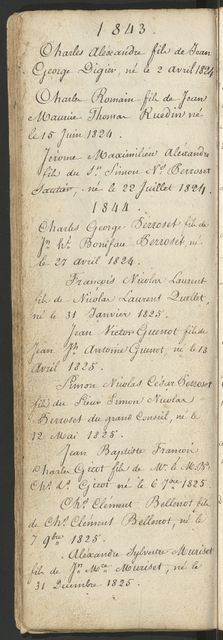 1843.
Charles Alexandre fils de Jean
George Digier, né le 2 avril 1824
Charle Romain fils de Jean
Maurice Thomas Ruedin né
le 15 Juin 1824.
Jérome Maximilien Alexandre
fils du Sr. Simon Ns. Perroset
Sautier, né le 22 Juillet 1824.
1844.
Charles George Perroset fils de
Jn. Bonifau Perroset, né
le 27 avril 1824.
François Nicolas Laurent
fils de Nicolas Laurent Quellet,
né le 31 Janvier 1825.
Jean Victor Guenot fils de
Jean Antoine Guenot, né le 13
Avril 1825.
Simon Nicolas César Perroset
fils du Sieur Simon Nicolas
Perroset du grand Conseil, né le
12 Mai 1825.
Jean Baptiste François
Charles Gicot fils de Mr. le
Chs. Gicot né le 6 7bre 1825
Chs. Clément Bellenot, fils
de Chs. Clément Bellenot, né le
7 9bre 1825.
Alexandre Sylvestre Muriset
fils de Jn. Muriset, né le
31 Decembre 1825.